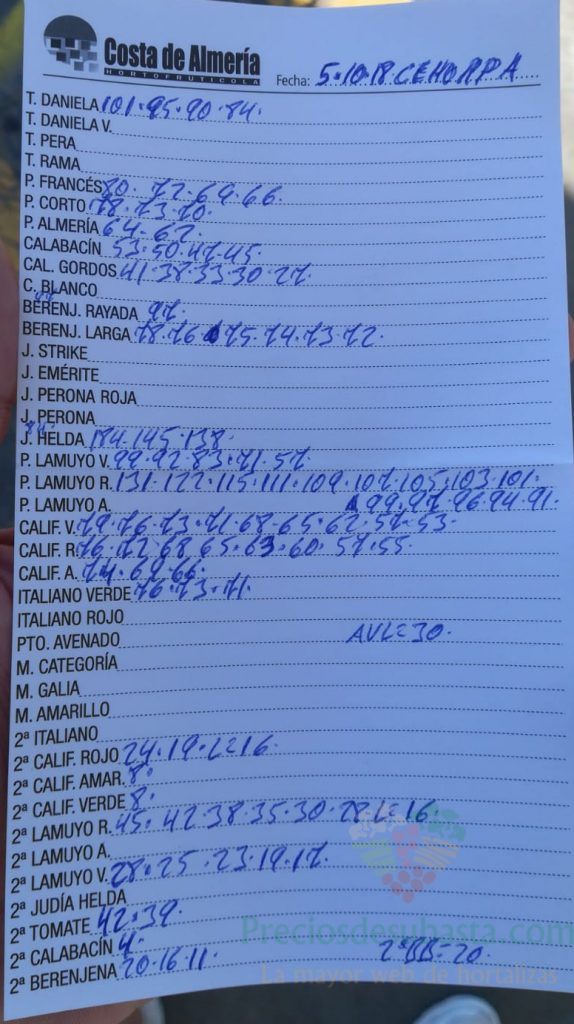 Costa de Almería
HORTOFRUTICOLA
Fecha: 5·10·18. CEHORPA
T. DANIELA 101·95·90·84.
T. DANIELA V.
T. PERA
T. RAMA
P. FRANCÉS 80. 72·69·66.
P. CORTO 78·73·70.
P. ALMERÍA 64-62.
CALABACÍN 53·50·47·45.
CAL. GORDOS 41·38·33·30·27.
C. BLANCO
BERENJ. RAYADA 97.
BERENJ. LARGA 78·76·75·74·73·72.
J. STRIKE
J. EMÉRITE
J. PERONA ROJA
J. PERONA
J. HELDA 184·145·138.
P. LAMUYO V. 99·92·83·71·57.
P. LAMUYO R. 131·122·115·111·109·107·105·103·101.
P. LAMUYO A. 99·97·96·94·91.
CALIF. V. 79·76·73·71·68·65·62·57·53.
CALIF. R. 76·72·68·65·63·60·57·55.
CALIF. A. 74·69·66.
ITALIANO VERDE 76·73·71.
ITALIANO ROJO
PTO. AVENADO AVL=30.
M. CATEGORÍA
M. GALIA
M. AMARILLO
2ª ITALIANO
2ª CALIF. ROJO 24·19·L=16.
2ª CALIF. AMAR. 8.
2ª CALIF. VERDE 8.
2ª LAMUYO R. 45·42·38·35·30·28·L=16.
2ª LAMUYO A.
2ª LAMUYO V. 28·25·23·19·17.
2ª JUDÍA HELDA
2ª TOMATE 42·39.
2ª CALABACÍN 4.
2ª BERENJENA 20·16·11. 2ªBB=20.
Preciosdesubasta.com
La mayor web de hortalizas